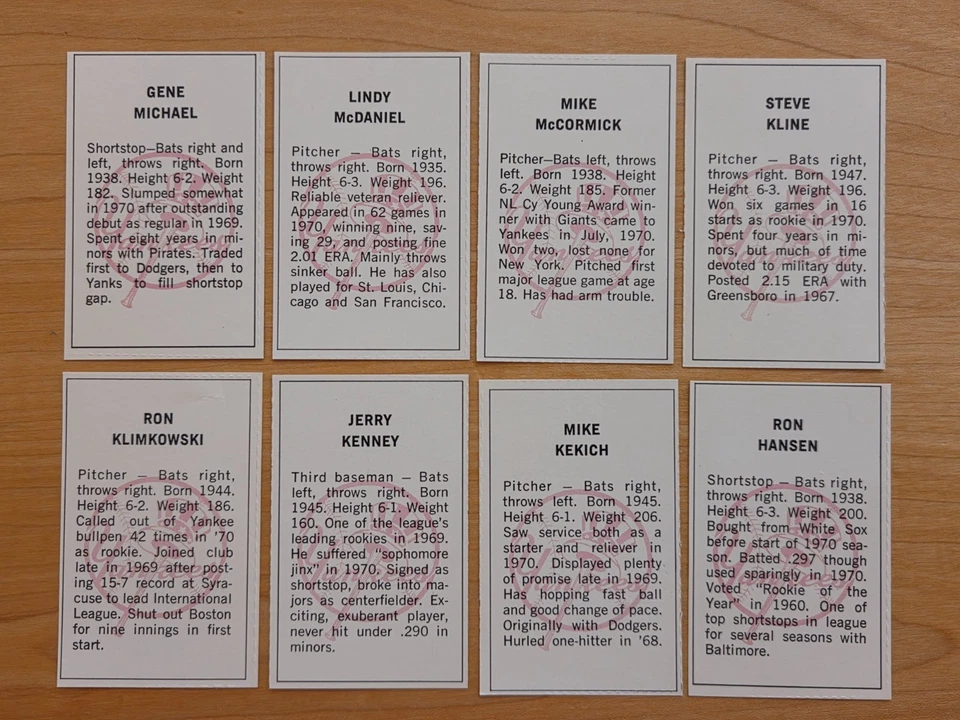 GENE
MICHAEL
Shortstop—Bats right and
left, throws right. Born
1938. Height 6-2. Weight
182. Slumped somewhat
in 1970 after outstanding
debut as regular in 1969.
Spent eight years in mi-
nors with Pirates. Traded
first to Dodgers, then to
Yanks to fill shortstop
gap.
LINDY
McDANIEL
Pitcher — Bats right,
throws right. Born 1935.
Height 6-3. Weight 196.
Reliable veteran reliever.
Appeared in 62 games in
1970, winning nine, sav-
ing 29, and posting fine
2.01 ERA. Mainly throws
sinker ball. He has also
played for St. Louis, Chi-
cago and San Francisco.
MIKE
McCORMICK
Pitcher—Bats left, throws
left. Born 1938. Height
6-2. Weight 185. Former
NL Cy Young Award win-
ner with Giants came to
Yankees in July, 1970.
Won two, lost none for
New York. Pitched first
major league game at age
18. Has had arm trouble.
STEVE
KLINE
Pitcher — Bats right,
throws right. Born 1947.
Height 6-3. Weight 196.
Won six games in 16
starts as rookie in 1970.
Spent four years in mi-
nors, but much of time
devoted to military duty.
Posted 2.15 ERA with
Greensboro in 1967.
RON
KLIMKOWSKI
Pitcher — Bats right,
throws right. Born 1944.
Height 6-2. Weight 186.
Called out of Yankee
bullpen 42 times in '70
as rookie. Joined club
late in 1969 after post-
ing 15-7 record at Syra-
cuse to lead International
League. Shut out Boston
for nine innings in first
start.
JERRY
KENNEY
Third baseman — Bats
left, throws right. Born
1945. Height 6-1. Weight
160. One of the league's
leading rookies in 1969.
He suffered "sophomore
jinx" in 1970. Signed as
shortstop, broke into ma-
jors as centerfielder. Ex-
citing, exuberant player,
never hit under .290 in
minors.
MIKE
KEKICH
Pitcher — Bats right,
throws left. Born 1945.
Height 6-1. Weight 206.
Saw service both as a
starter and reliever in
1970. Displayed plenty
of promise late in 1969.
Has hopping fast ball
and good change of pace.
Originally with Dodgers.
Hurled one-hitter in '68.
RON
HANSEN
Shortstop — Bats right,
throws right. Born 1938.
Height 6-3. Weight 200.
Bought from White Sox
before start of 1970 sea-
son. Batted .297 though
used sparingly in 1970.
Voted "Rookie of the
Year" in 1960. One of
top shortstops in league
for several seasons with
Baltimore.